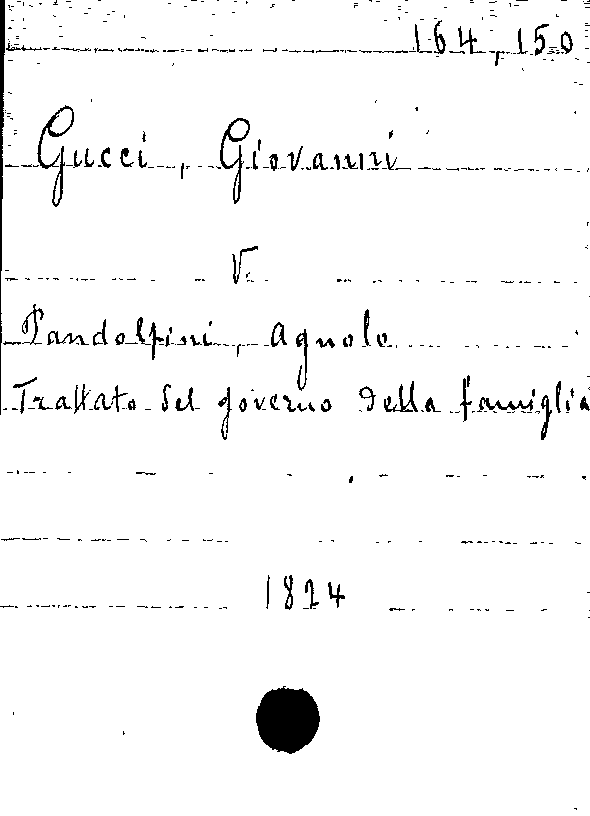 164,150
Gucci, Giovanni
V.
Pandolfini, Agnolo
Trattato del governo della famiglia
1824